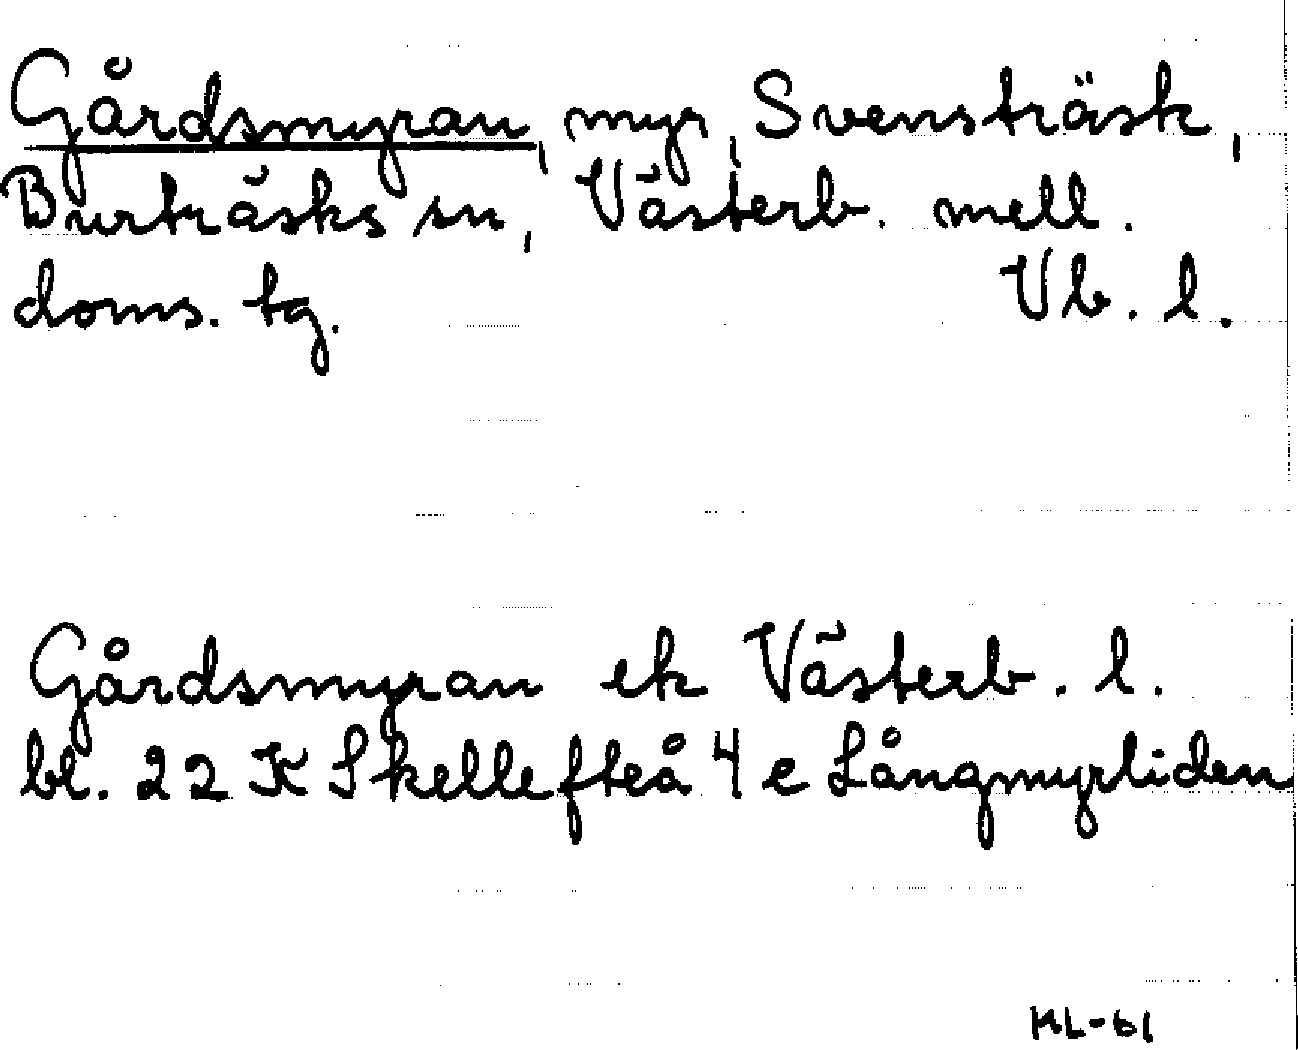 Gårdsmyran, myr, Svensträsk,
Burträsks sn, Västerb. mell.
doms. tg. Vb. l.
Gårdsmyran ek Västerb. l.
bl. 22 K Skellefteå 4 e Långmyrliden
ML-61